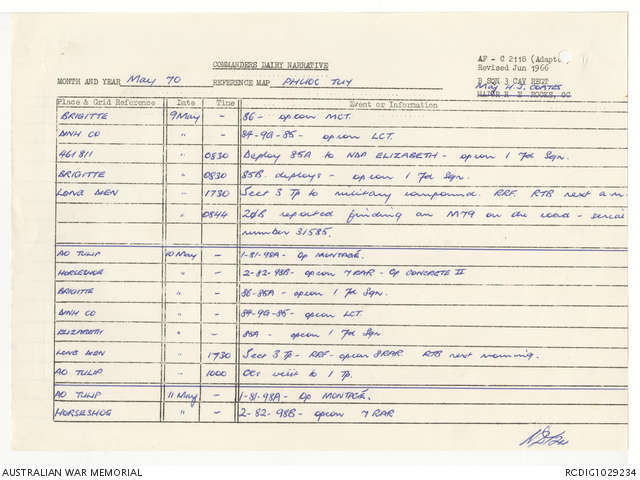 COMMANDERS DAIRY NARRATIVE
AF - C 2118 (Adapt
Revised Jun 1966
B SQN 3 CAV REGT
MONTH AND YEAR May 70 REFERENCE MAP PHUOC TUY
Maj W.J. COATES
Place & Grid Reference Date Time Event or Information
BRIGITTE 9 May - 86 - opcon MCT.
DINH CO " - 84-9G-85 - opcon LCT.
461811 " 0830 Deploy 85A to NDP ELIZABETH - opcon 1 Fd Sqn.
BRIGITTE " 0830 85B deploys - opcon 1 Fd Sqn.
LONG DIEN " 1730 Sect 3 Tp to military compound. RRF. RTB next a.m.
" 0844 20B reported finding an M79 on the road - serial
number 31585.
AO TULIP 10 May - 1-81-98A - Op MONTAGE.
HORSESHOE " - 2-82-98B - opcon 7 RAR - Op CONCRETE II
BRIGITTE " - 86-85A - opcon 1 Fd Sqn.
DINH CO " - 84-9G-85 - opcon LCT.
ELIZABETH " - 85A - opcon 1 Fd Sqn
LONG DIEN " 1730 Sect 3 Tp - RRF - opcon 8RAR RTB next morning.
AO TULIP " 1000 OCs visit to 1 Tp.
AO TULIP 11 May - 1-81-98A - Op MONTAGE.
HORSESHOE " - 2-82-98B - opcon 7 RAR
AUSTRALIAN WAR MEMORIAL
RCDIG1029234